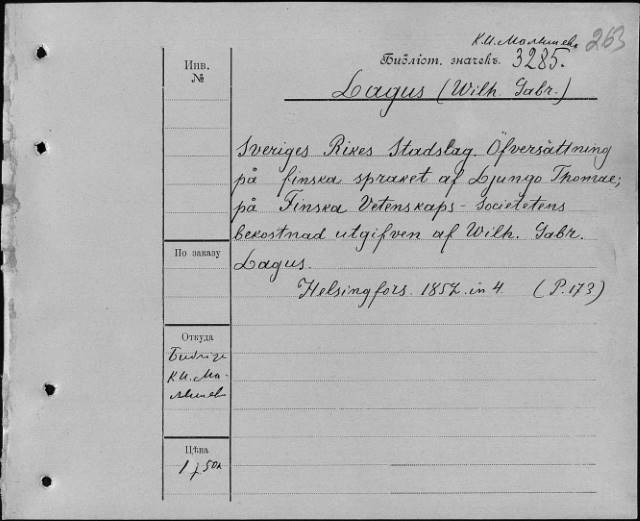 К.И. Малышева 263
Библіот. значекъ 3285.
Lagus (Wilh. Gabr.)
Инв.
№
Sveriges Rikes Stadslag. Öfversättning
på finska språket af Ljungo Thomae;
på Finska Vetenskaps-Societetens
bekostnad utgifven af Wilh. Gabr.
Lagus.
Helsingfors. 1852. in 4. (P. 173)
По заказу
Откуда
К.И. Ма-
лышев
Цѣна
1 р 50к